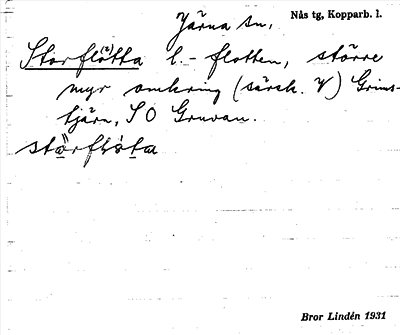 Järna sn,
Nås tg, Kopparb. l.
Storflötta l. -flotten, större
myr omkring (särsk. V) Grims-
tjärn, SO Gruvan.
Bror Lindén 1931